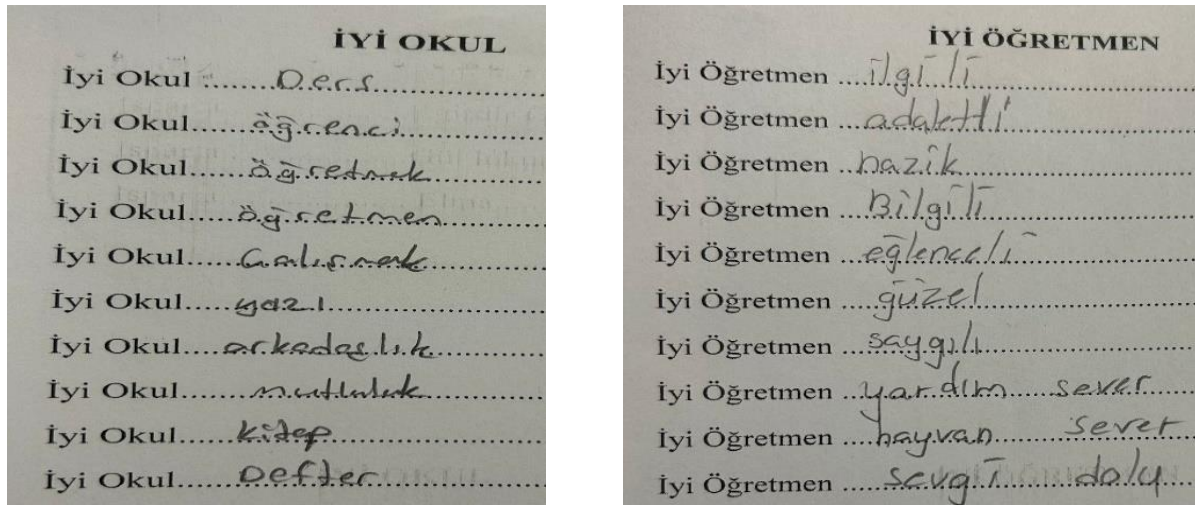 İYİ OKUL
İyi Okul ........Ders..................
İyi Okul......öğrenci................
İyi Okul......öğretmek..............
İyi Okul......öğretmen.............
İyi Okul......Çalışmak..............
İyi Okul......yazı........................
İyi Okul.....arkadaşlık..............
İyi Okul......mutluluk...............
İyi Okul......kitap......................
İyi Okul......Defter....................
İYİ ÖĞRETMEN
İyi Öğretmen ....ilgili....................
İyi Öğretmen ....adaletli................
İyi Öğretmen ....nazik....................
İyi Öğretmen ....Bilgili...................
İyi Öğretmen ....eğlenceli..............
İyi Öğretmen ....güzel....................
İyi Öğretmen ....saygılı..................
İyi Öğretmen ....yardım sever......
İyi Öğretmen ....hayvan sever
İyi Öğretmen ......sevgi dolu....